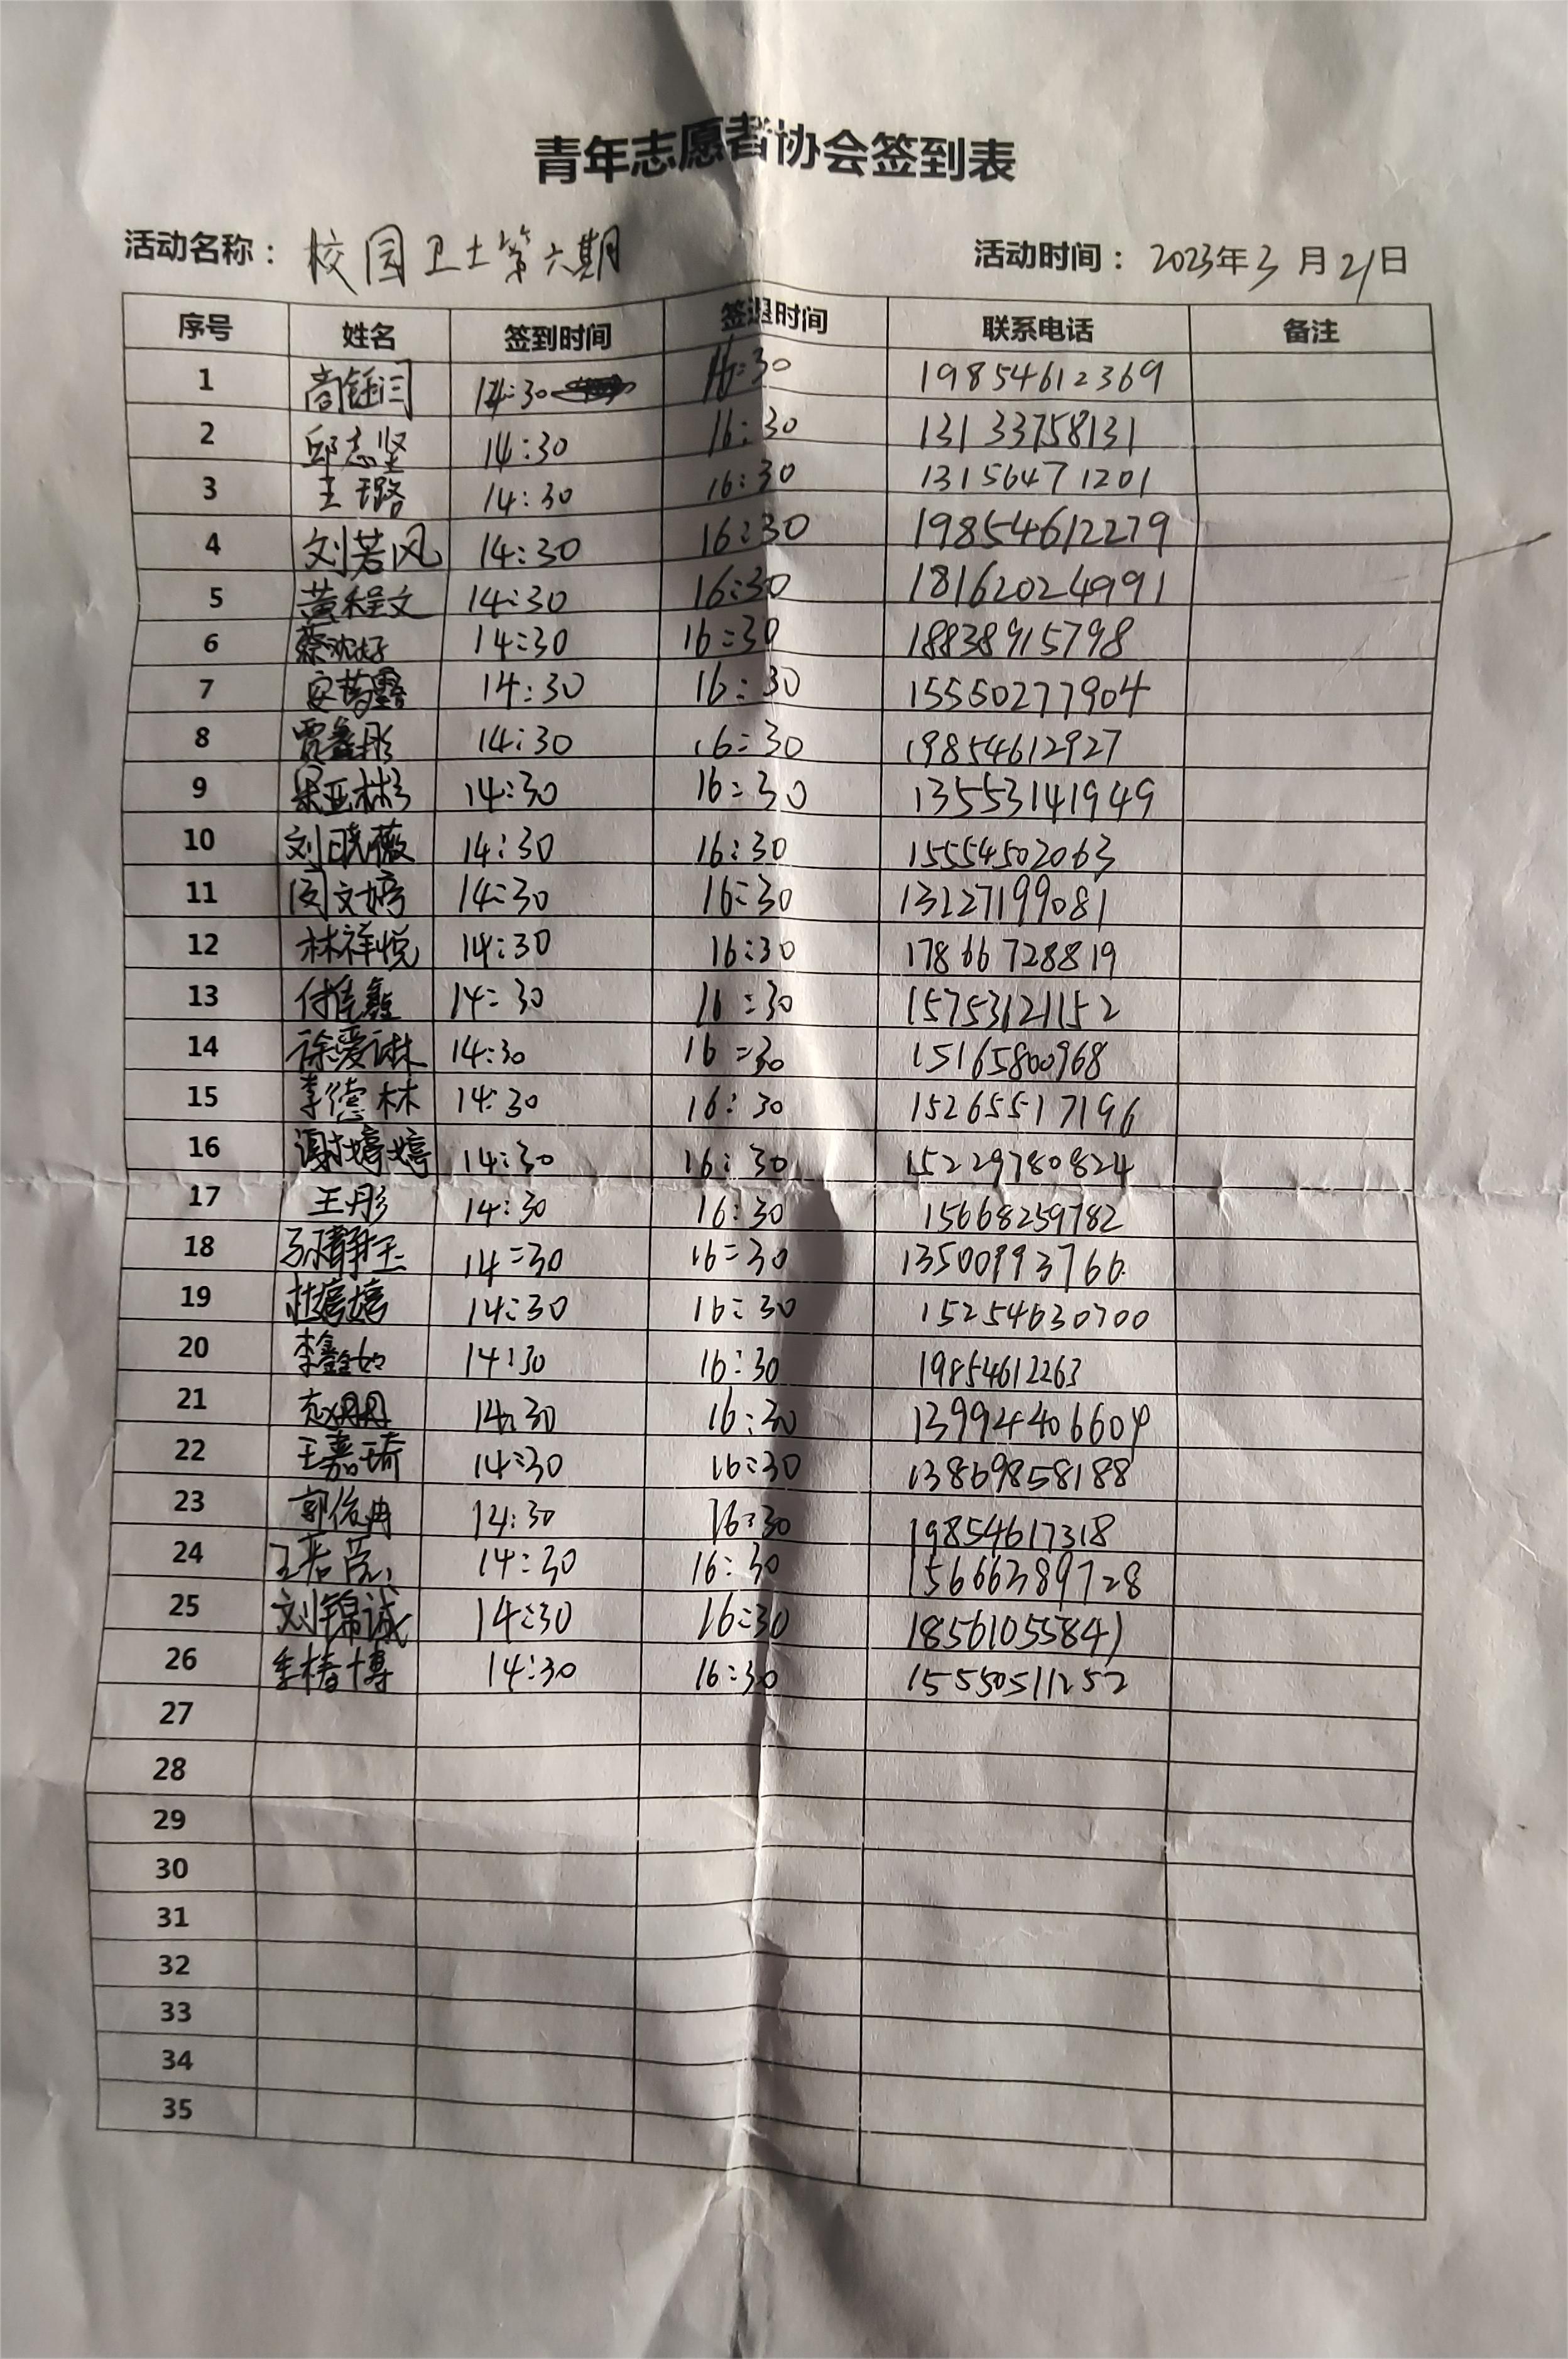 青年志愿者协会签到表
活动名称： 校园卫士第六期 活动时间： 2023年3月21日
序号 姓名 签到时间 签退时间 联系电话 备注
1 14:30 16:30 19854612369
2 邱志坚 14:30 16:30 13133758131
3 王璐 14:30 16:30 13156471201
4 刘若风 14:30 16:30 19854612279
5 黄程文 14:30 16:30 18162024991
6 蔡欢好 14:30 16:30 18838915798
7 14:30 16:30 15550277904
8 贾鑫彤 14:30 16:30 19854612927
9 梁亚彬 14:30 16:30 13553141949
10 刘晓薇 14:30 16:30 15554502063
11 闵文婷 14:30 16:30 13227199081
12 林祥悦 14:30 16:30 17866728819
13 付佳鑫 14:30 16:30 15753121152
14 徐爱琳 14:30 16:30 15165800968
15 李德林 14:30 16:30 15265517196
16 谢婷婷 14:30 16:30 15229780824
17 王彤 14:30 16:30 15668259782
18 孙静玉 14:30 16:30 13500993766
19 杜婷婷 14:30 16:30 15254630700
20 李鑫如 14:30 16:30 19854612263
21 14:30 16:30
22 王嘉琦 14:30 16:30 13869858188
23 郭俊冉 14:30 16:30 19854617318
24 14:30 16:30 15666389728
25 刘锦诚 14:30 16:30 18561055841
26 季椿博 14:30 16:30 15550511252
27
28
29
30
31
32
33
34
35